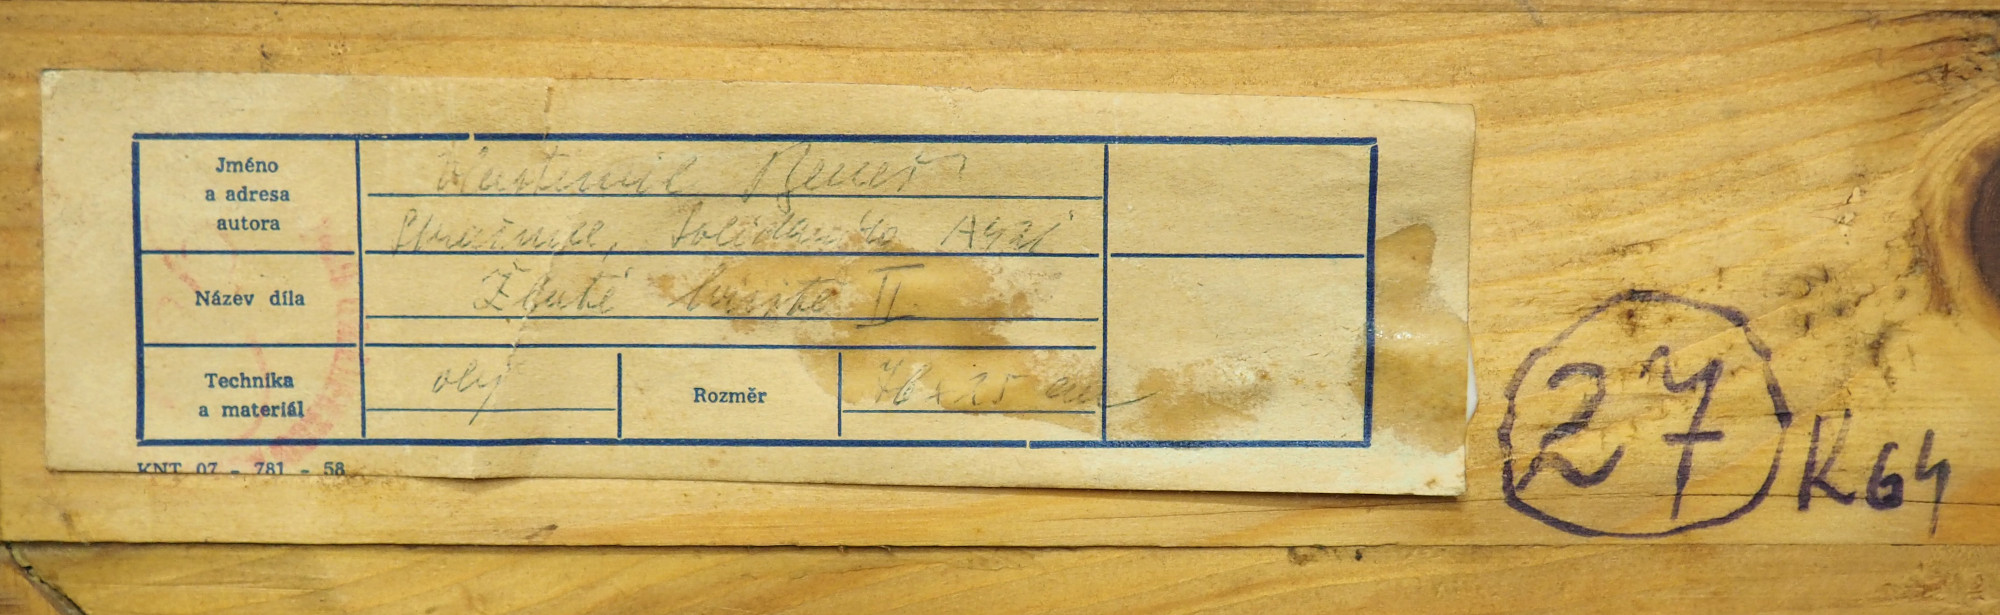 Jméno
a adresa
autora
Vlastimil Beneš
Strašnice, Solidarita
Název díla
Žluté II
Technika
a materiál
olej
Rozměr
76 x 25 cm
KNT 07 - 781 - 58
27
R64